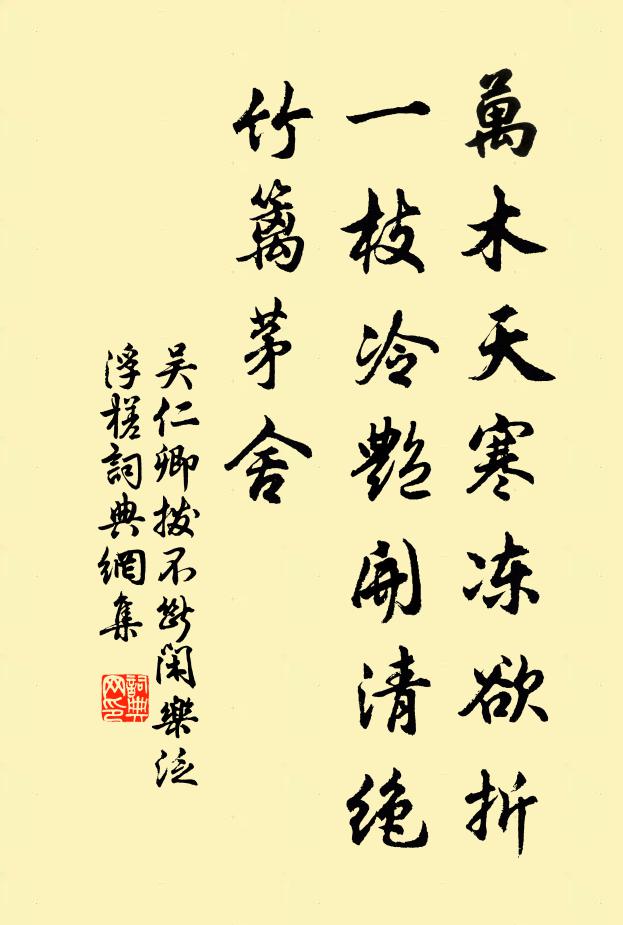 萬木天寒冻欲折
一枝冷艷開清绝
竹篱茅舍
吴仁卿拨不断闲樂泛
浮槎詞典網集
詞典
网印